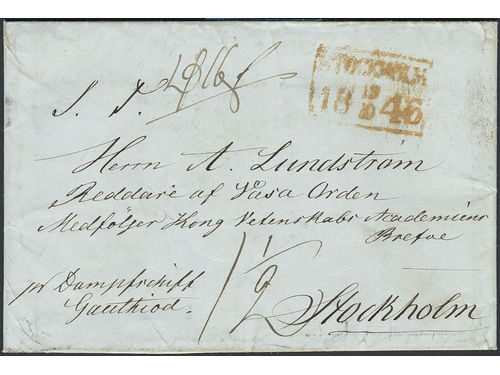 STOCKHOLM
18 19/10 46
S. T.
Herrn A. Lundström
Reddare af Vasa Orden
Medföljer Kong Vetenskabs Academiens
Brefve
1 1/2
pr Dampfschift
Gauthiod.
Stockholm